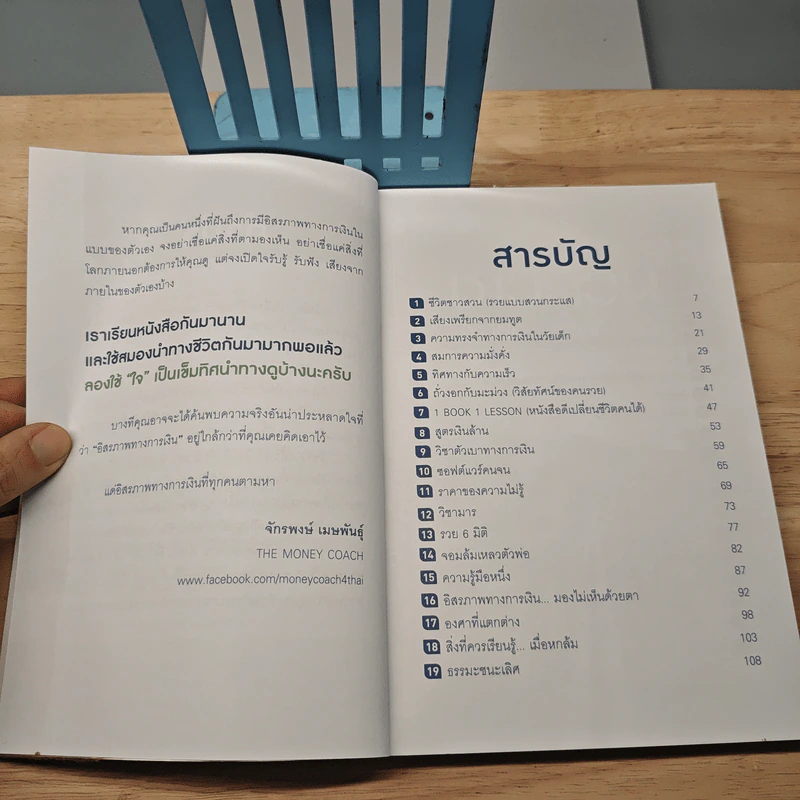 หากคุณเป็นคนหนึ่งที่ฝันถึงการมีอิสรภาพทางการเงินใน
แบบของตัวเอง จงอย่าเชื่อแค่สิ่งที่ตามองเห็น อย่าเชื่อแค่สิ่งที่
โลกภายนอกต้องการให้คุณดู แต่จงเปิดใจรับรู้ รับฟัง เสียงจาก
ภายในของตัวเองบ้าง
เราเรียนหนังสือกันมานาน
และใช้สมองนำทางชีวิตกันมามากพอแล้ว
ลองใช้ "ใจ" เป็นเข็มทิศนำทางดูบ้างนะครับ
บางทีคุณอาจจะได้ค้นพบความจริงอันน่าประหลาดใจที่
ว่า "อิสรภาพทางการเงิน" อยู่ใกล้กว่าที่คุณเคยคิดเอาไว้
แด่อิสรภาพทางการเงินที่ทุกคนตามหา
จักรพงษ์ เมษพันธุ์
THE MONEY COACH
www.facebook.com/moneycoach4thai
สารบัญ
1 ชีวิตชาวสวน (รวยแบบสวนกระแส) 7
2 เสียงเพรียกจากยมทูต 13
3 ความทรงจำทางการเงินในวัยเด็ก 21
4 สมการความมั่งคั่ง 29
5 ทิศทางกับความเร็ว 35
6 ถั่วงอกกับมะม่วง (วิสัยทัศน์ของคนรวย) 41
7 1 BOOK 1 LESSON (หนังสือดีเปลี่ยนชีวิตคนได้) 47
8 สูตรเงินล้าน 53
9 วิชาตัวเบาทางการเงิน 59
10 ซอฟต์แวร์คนจน 65
11 ราคาของความไม่รู้ 69
12 วิชามาร 73
13 รวย 6 มิติ 77
14 จอมล้มเหลวตัวพ่อ 82
15 ความรู้มือหนึ่ง 87
16 อิสรภาพทางการเงิน... มองไม่เห็นด้วยตา 92
17 องศาที่แตกต่าง 98
18 สิ่งที่ควรเรียนรู้... เมื่อหกล้ม 103
19 ธรรมะชนะเลิศ 108